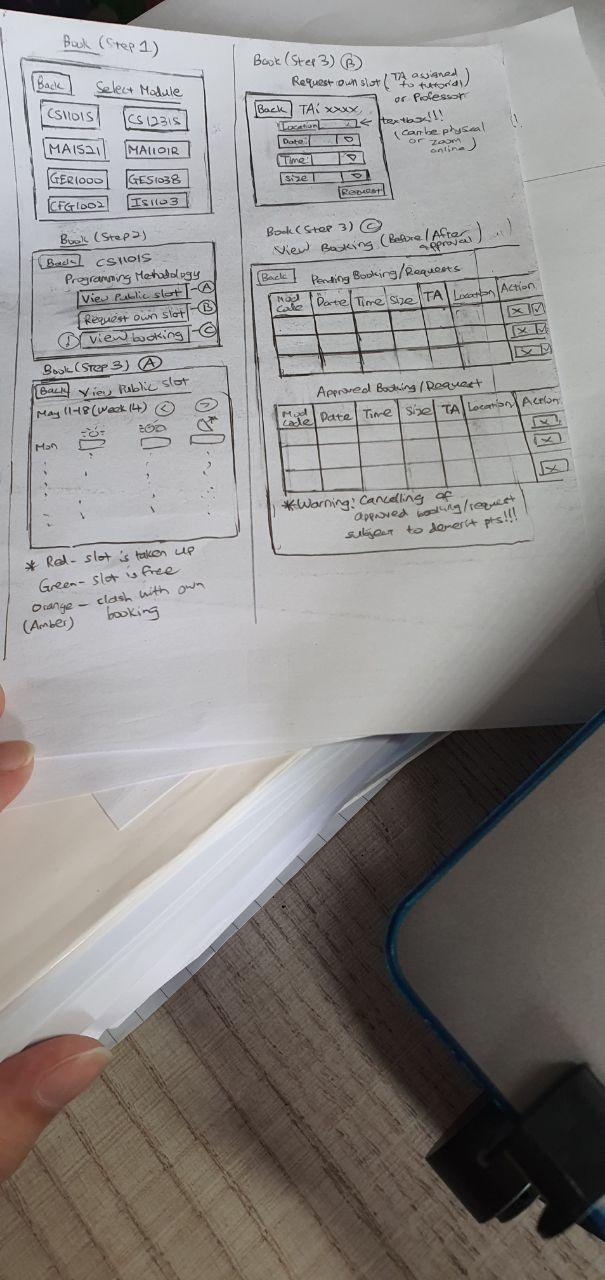 Book (Step 1)
Back
Select Module
CS1101S
CS1231S
MA1521
MA1101R
GER1000
GES1038
CFG1002
IS1103
Book (Step 2)
Back CS1101S
Programming Methodology
View Public slot A
Request own slot B
! View booking C
Book (Step 3) A
Back View Public slot
May 11-18 (Week 14) < >
Mon
* Red - slot is taken up
Green - slot is free
Orange - clash with own
(Amber) booking
Book (Step 3) B
Request own slot (TA assigned
to tutorial)
or Professor
Back TA: xxxx
Location
textbox!!!
(can be physical
or zoom
online)
Date:
Time:
Size
Request
Book (Step 3) C
View Booking (Before/After
approval)
Back Pending Booking/Requests
Mod Code Date Time Size TA Location Action
X ✓
X ✓
X ✓
Approved Booking/Request
Mod Code Date Time Size TA Location Action
X
X
X
*Warning! Cancelling of
approved booking/request
subject to demerit pts!!!